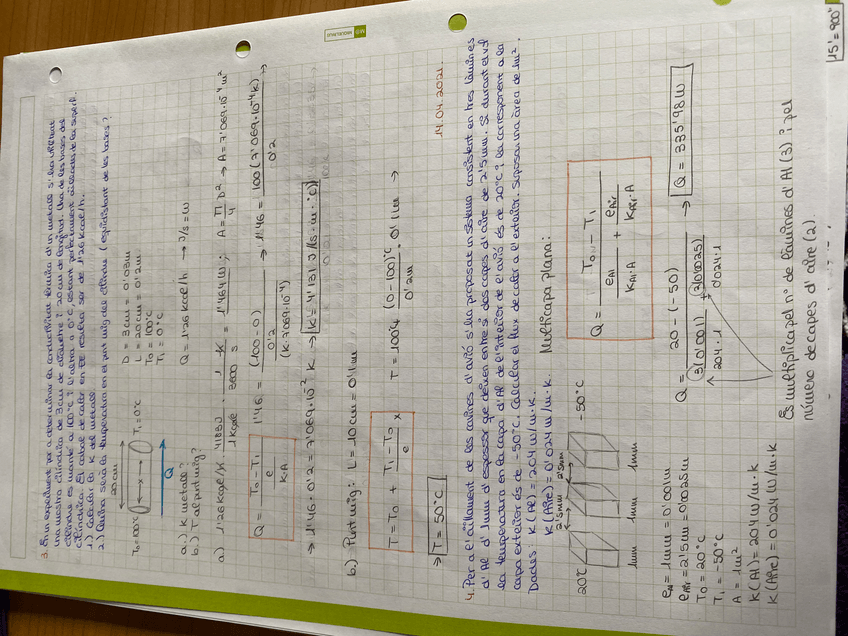 3. En un experiment per a determinar la conductivitat tèrmica d'un metall s'ha utilitzat
una mostra cilíndrica de 3cm de diàmetre i 20cm de longitud. Una de les bases del
cilindre es manté a 100°C i l'altra a 0°C, estant perfectament aïllada la superf.
cilíndrica. El cabal de calor en RE resulta ser de 1'26 kcal/h.
1) Calcular la K del metall
2) Quina serà la temperatura en el punt mig del cilindre (equidistant de les bases)?
20cm
T0=100°C
x
T1=0°C
Q
D = 3cm = 0'03m
L = 20cm = 0'2m
T0 = 100°C
T1 = 0°C
Q = 1'26 kcal/h → J/s = W
a.) K metall?
b.) T al punt mig?
a) 1'26 kcal/h · 4180 J / 1 kcal · 1 h / 3600 s = 1'464 W; A = π/4 D² → A = 7'069·10⁻⁴ m²
Q = T0 - T1 / e / K·A
1'46 = (100-0) / 0'2 / (K·7'069·10⁻⁴) → 1'46 = 100(7'069·10⁻⁴K) / 0'2 →
→ 1'46·0'2 = 7'069·10⁻² K → K = 4'131 J/(s·m·°C)
b.) Punt mig: L = 10cm = 0'1m
T = T0 + T1 - T0 / e x
T = 100°C + (0-100)°C / 0'2m · 0'1m →
→ T = 50°C
14.04.2021.
4. Per a l'aïllament de les cabines d'avió s'ha proposat un sistema consistent en tres làmines
d'Al d'1mm d'espessor que deixen entre si dos capes d'aire de 2'5mm. Si durant el vol
la temperatura en la capa d'Al de l'interior de l'avió és de 20°C i la corresponent a la
capa exterior és de -50°C. Calcular el flux de calor a l'exterior. Suposar una àrea de 1m².
Dades K(Al) = 204 W/m·K.
K(Aire) = 0'024 W/m·K.
Multicapa plana:
20°C
2'5mm
2'5mm
-50°C
1mm
1mm
1mm
Q = T0 - T1 / eAl / KAl·A + eAir / KAir·A
eAl = 1mm = 0'001m
eAir = 2'5mm = 0'0025m
T0 = 20°C
T1 = -50°C
A = 1m²
K(Al) = 204 W/m·K
K(Aire) = 0'024 W/m·K
Q = 20-(-50) / 3(0'001) / 204·1 + 2(0'0025) / 0'024·1 → Q = 335'98 W
Es multiplica pel nº de làmines d'Al (3) i pel
número de capes d'aire (2).
15' = 900"